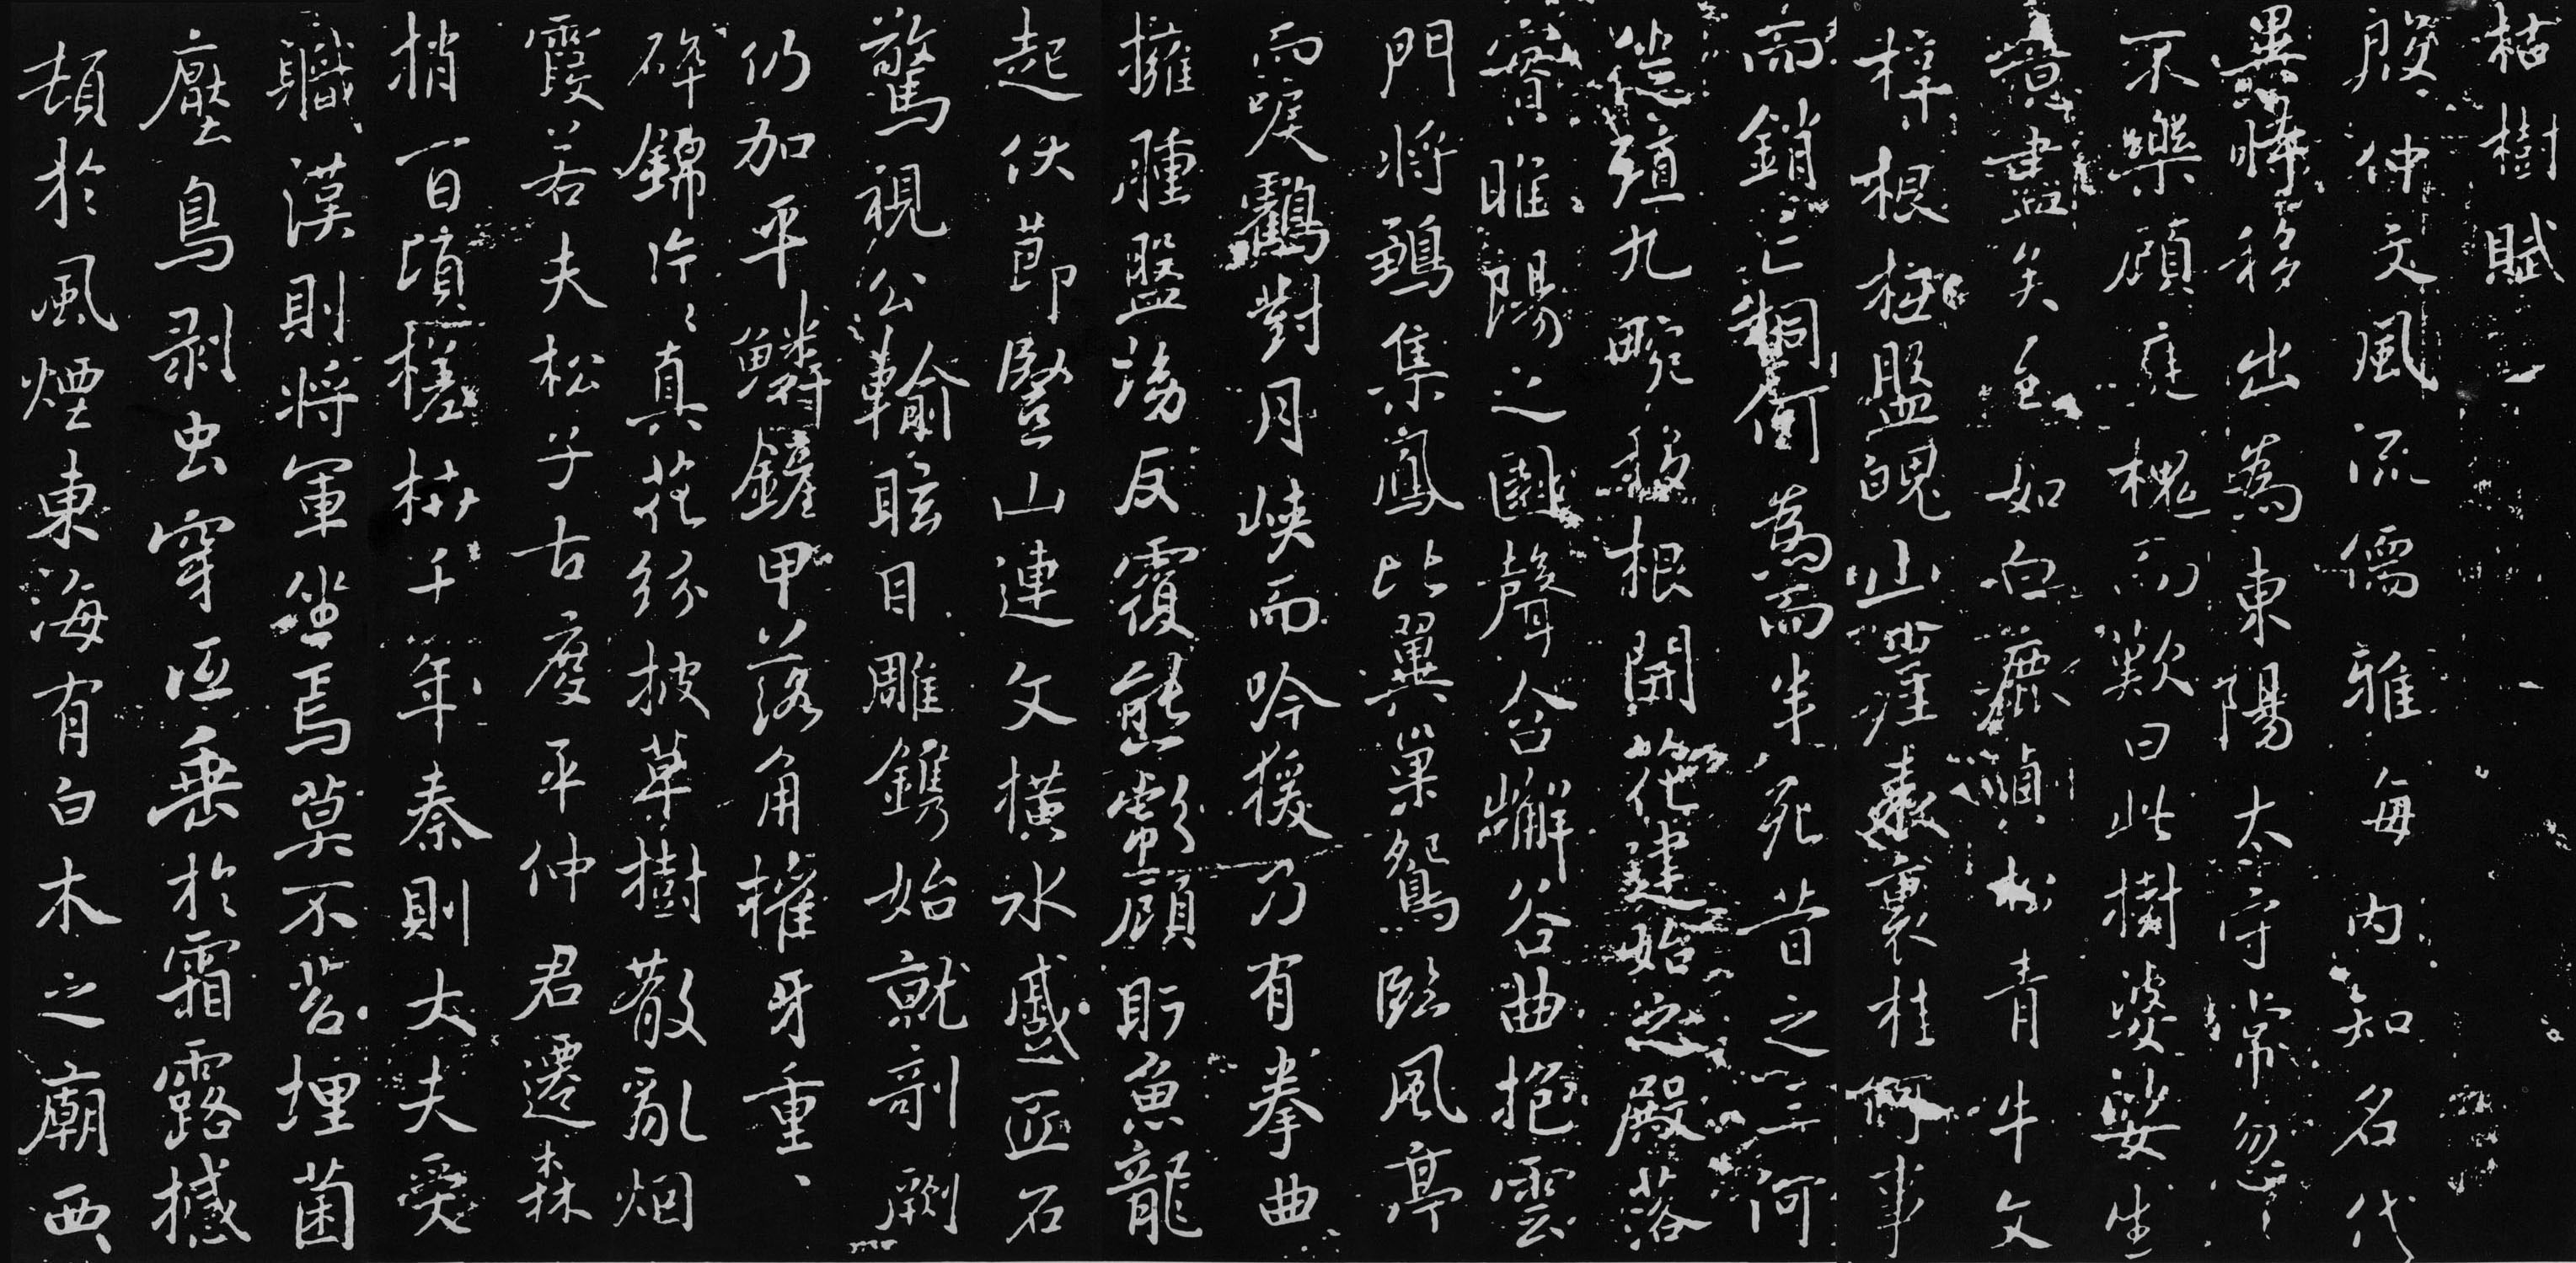 枯樹賦
殷仲文風流儒雅海內知名代
異時移出為東陽太守常忽忽
不樂顧庭槐而歎曰此樹婆娑生
意盡矣至如白鹿貞松青牛文
梓根柢盤魄山崖表裏桂何事
而銷亡桐何為而半死昔之三河
徙殖九畹移根開花建始之殿落
實睢陽之園聲含嶰谷曲抱雲
門將鶵集鳳比翼巢鴛臨風亭
而唳鶴對月峽而吟猨乃有拳曲
擁腫盤坳反覆熊彪顧盼魚龍
起伏節豎山連文橫水蹙匠石
驚視公輸眩目雕鐫始就剞劂
仍加平鱗鏟甲落角摧牙重重
碎錦片片真花紛披草樹散亂烟
霞若夫松子古度平仲君遷森
梢百頃槎枿千年秦則大夫受
職漢則將軍坐焉莫不苔埋菌
壓鳥剥虫穿或垂於霜露撼
頓於風煙東海有白木之廟西